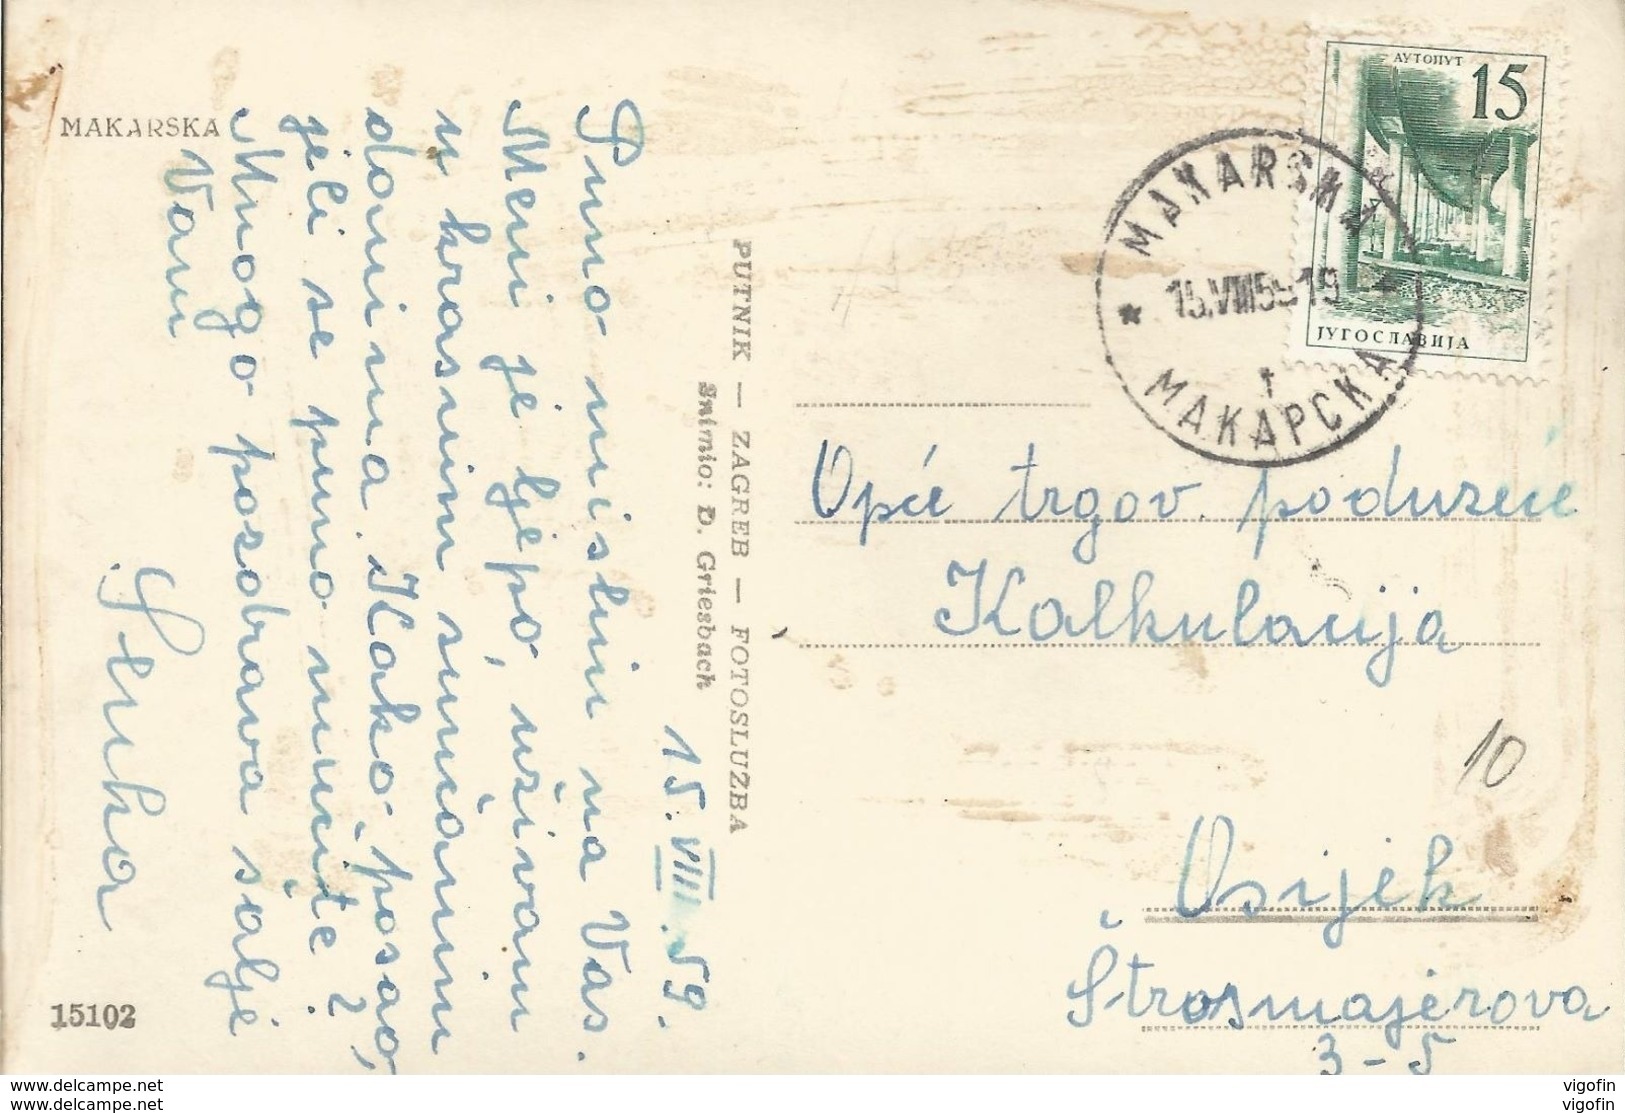 MAKARSKA
15. VIII. 59.
Puno mislim na Vas.
Meni je ljepo, uživam
u krasnim sunčanim
danima. Kako posao,
jeli se puno mučite?
Mnogo pozdrava šalje
Vam
15102
PUTNIK — ZAGREB — FOTOSLUŽBA
Snimio: Đ. Griesbach
АУТОПУТ
15
ЈУГОСЛАВИЈА
MAKARSKA
15.VIII59 19
МАКАРСКА
Opće trgov. poduzeće
Kalkulacija
10
Osijek
Štrosmajerova
3-5
www.delcampe.net
www.delcampe.net
vigofin
vigofin